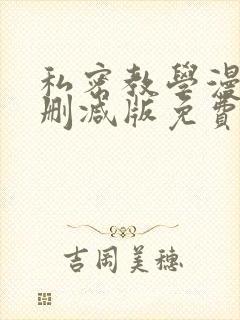 私密教學漫
刪減版免費
吉岡美穗